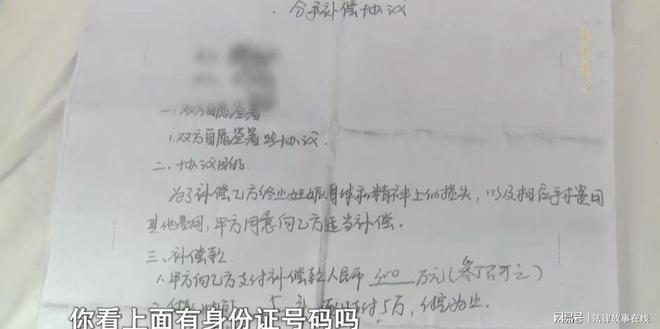 分手补偿协议
一、双方自愿签署
1.双方自愿签署此协议.
二、协议目的
为了补偿乙方终止妊娠身体和精神上的损失,以及相应手术费用
其他费用,甲方同意向乙方适当补偿.
三、补偿款
1.甲方向乙方支付补偿款人民币 300 万元(叁百万元)
付5万,
你看上面有身份证号码吗
网易号 | 法律故事在线